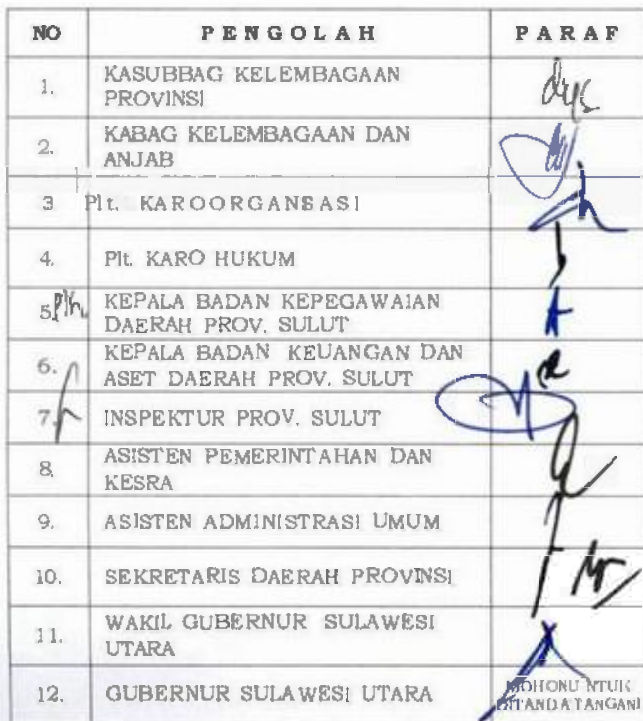 NO PENGOLAH PARAF
1. KASUBBAG KELEMBAGAAN
PROVINSI
2. KABAG KELEMBAGAAN DAN
ANJAB
3 Plt. KAROORGANSASI
4. Plt. KARO HUKUM
5. Plh. KEPALA BADAN KEPEGAWAIAN
DAERAH PROV. SULUT
6. KEPALA BADAN KEUANGAN DAN
ASET DAERAH PROV. SULUT
7. INSPEKTUR PROV. SULUT
8. ASISTEN PEMERINTAHAN DAN
KESRA
9. ASISTEN ADMINISTRASI UMUM
10. SEKRETARIS DAERAH PROVINSI
11. WAKIL GUBERNUR SULAWESI
UTARA
12. GUBERNUR SULAWESI UTARA MOHON UNTUK
DITANDATANGANI